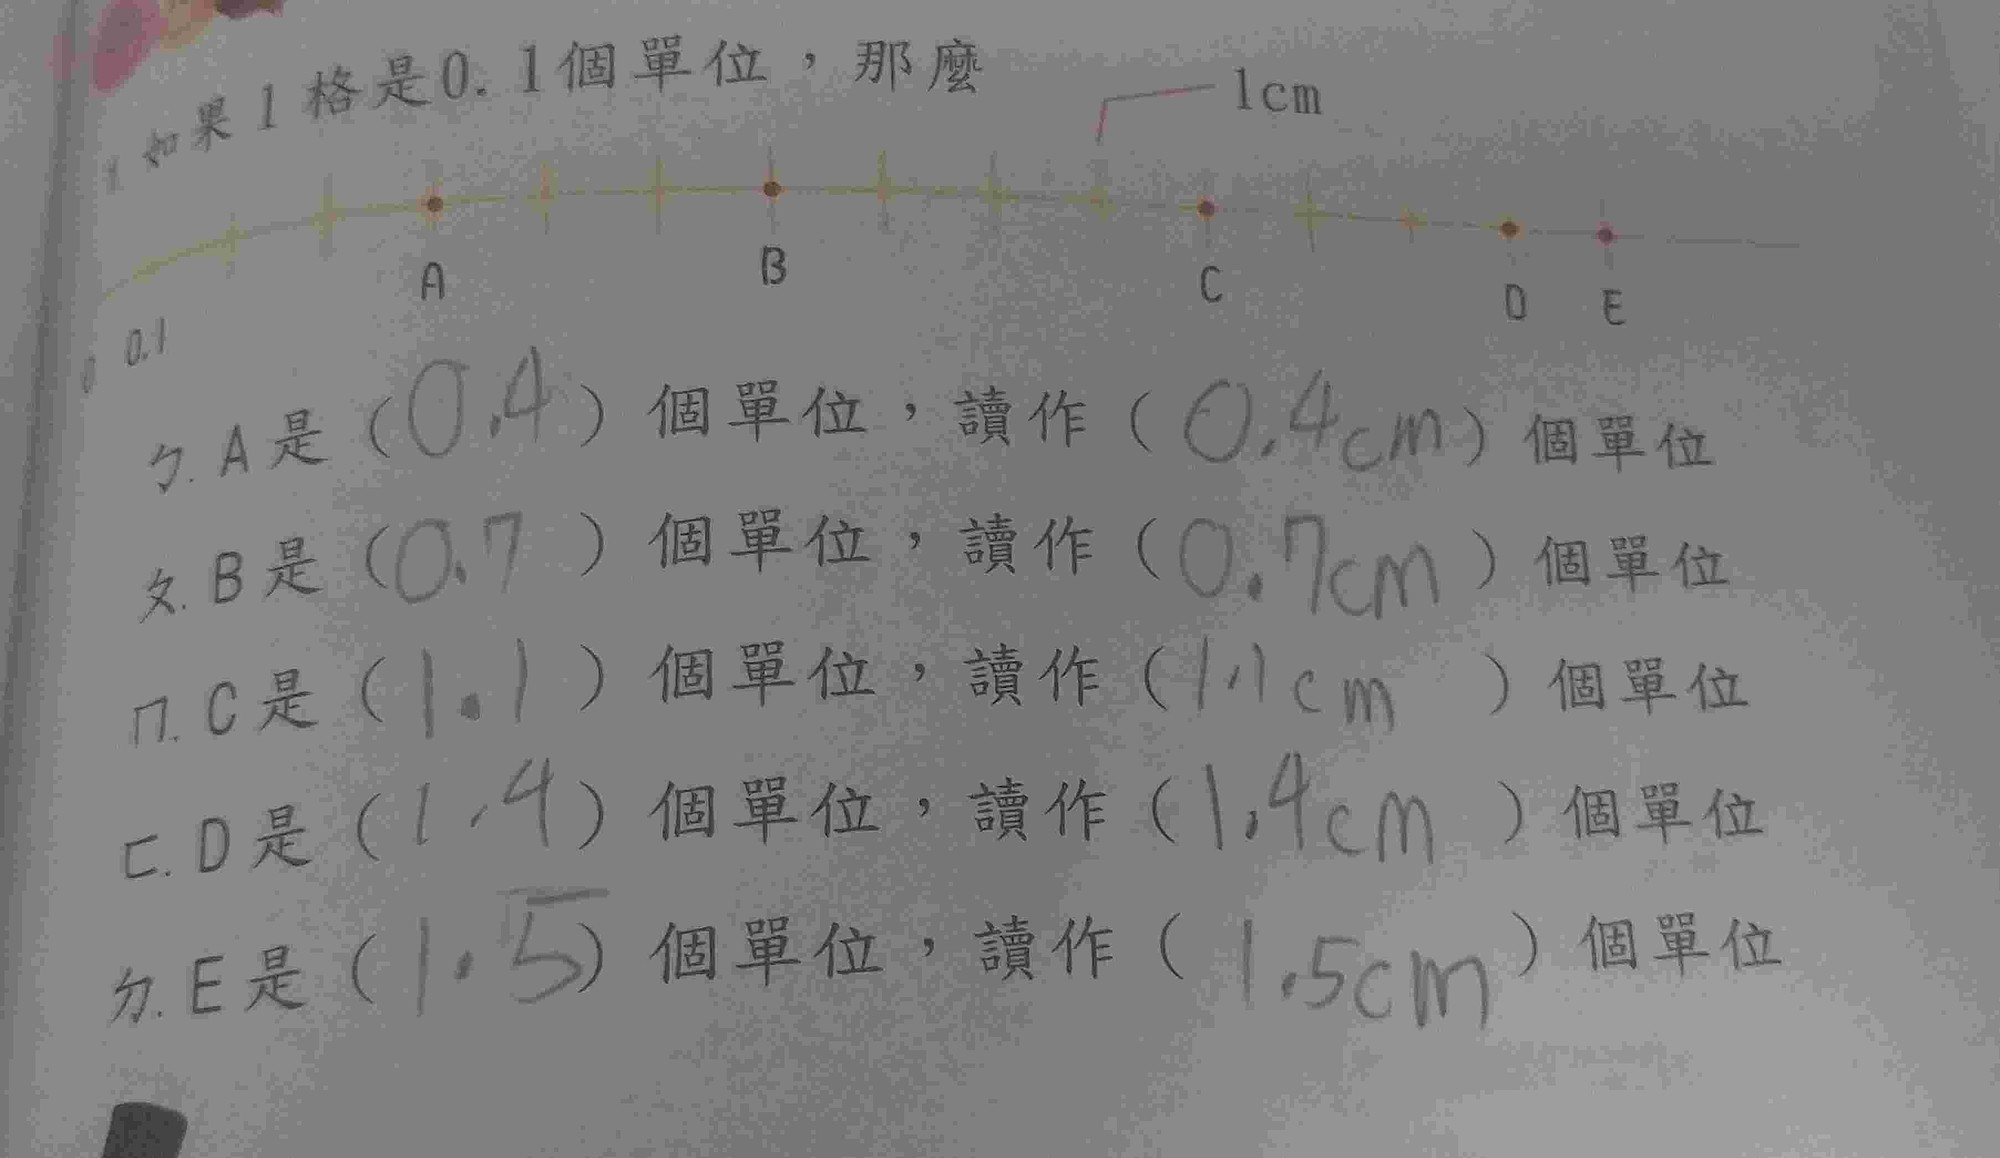 如果1格是0.1個單位，那麼
1cm
A B C D E
0 0.1
ㄅ.A是(0.4)個單位，讀作(0.4cm)個單位
ㄆ.B是(0.7)個單位，讀作(0.7cm)個單位
ㄇ.C是(1.1)個單位，讀作(1.1cm)個單位
ㄈ.D是(1.4)個單位，讀作(1.4cm)個單位
ㄉ.E是(1.5)個單位，讀作(1.5cm)個單位